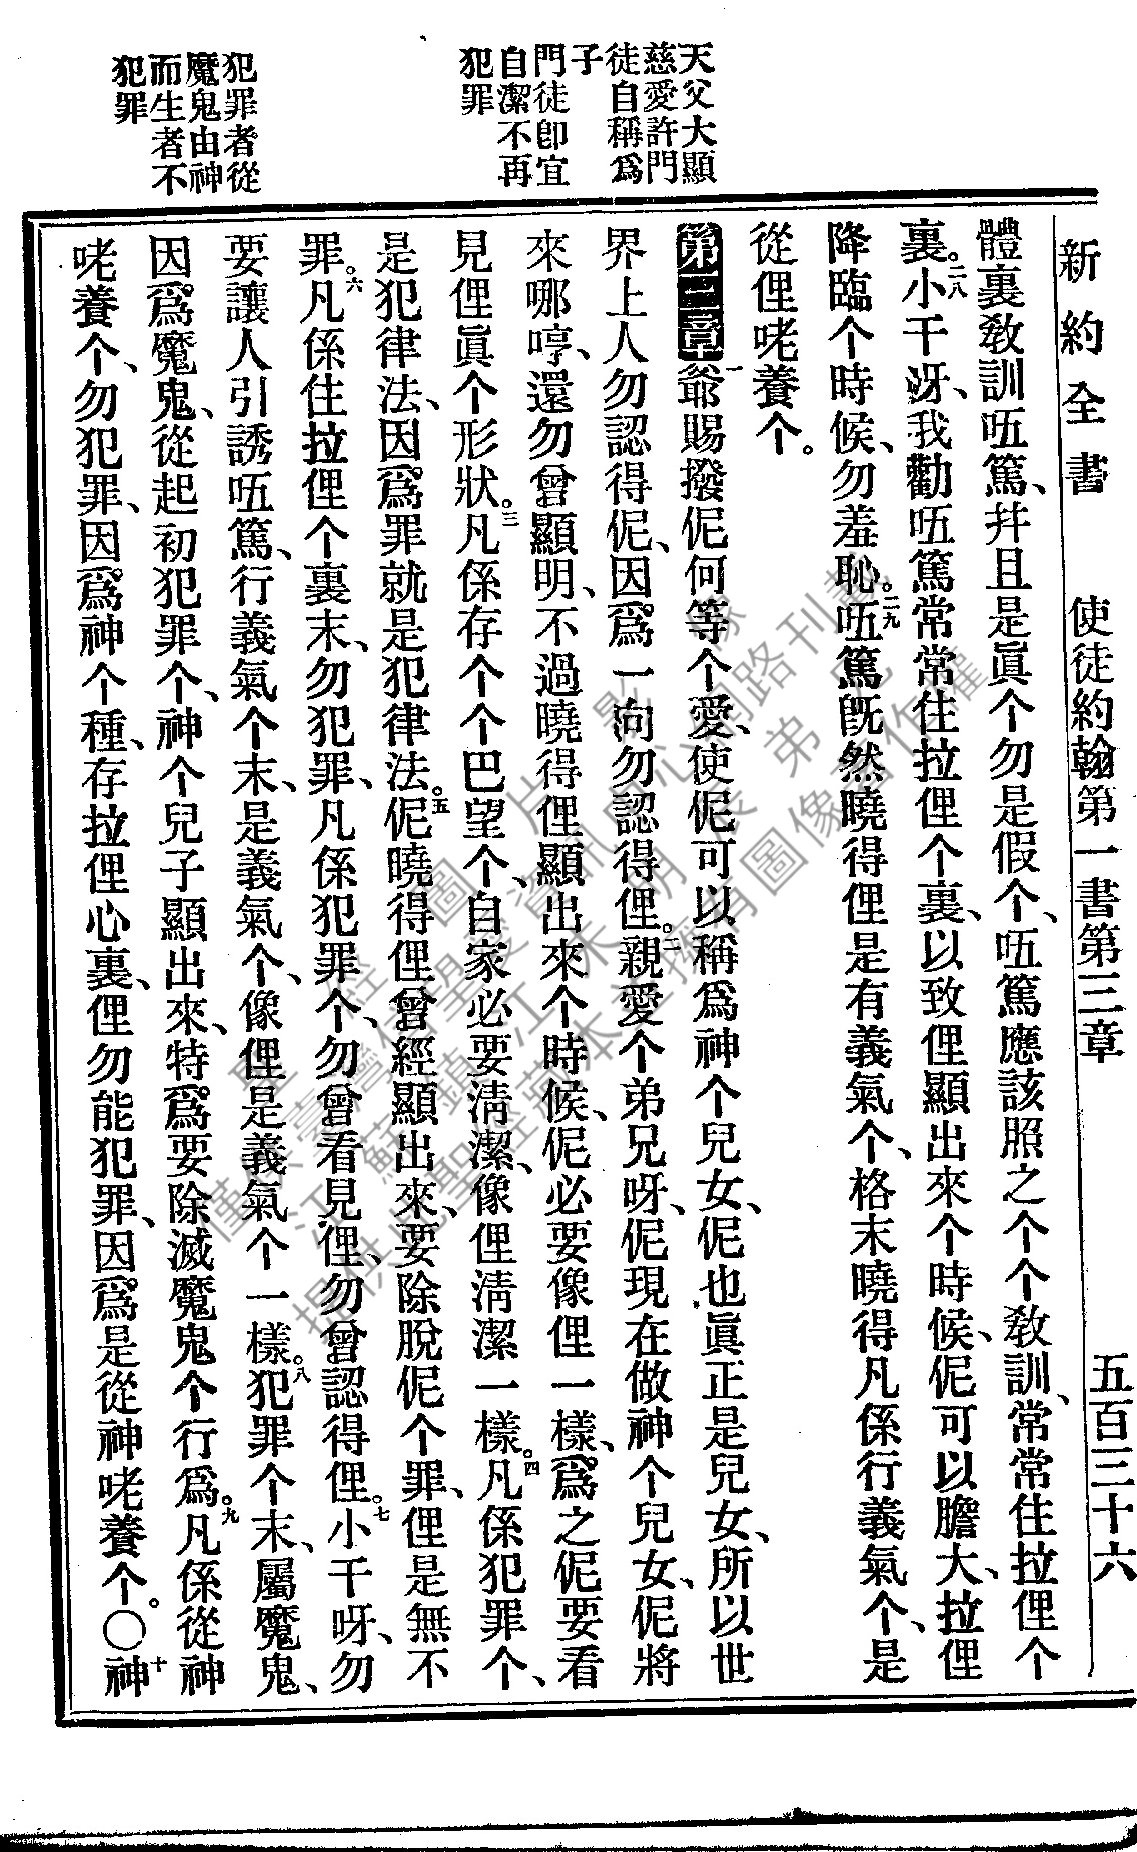 新約全書　使徒約翰第一書第三章　五百三十六
體裏教訓㕶篤、幷且是眞个勿是假个、㕶篤應該照之个个教訓、常常住拉俚个
裏。二八小干呀、我勸㕶篤常常住拉俚个裏、以致俚顯出來个時候、伲可以膽大、拉俚
降臨个時候、勿羞恥。二九㕶篤旣然曉得俚是有義氣个、格末曉得凡係行義氣个、是
從俚咾養个。
第三章一爺賜撥伲何等个愛、使伲可以稱爲神个兒女、伲也眞正是兒女、所以世
界上人勿認得伲、因爲一向勿認得俚。二親愛个弟兄呀、伲現在做神个兒女、伲將
來哪哼、還勿曾顯明、不過曉得俚顯出來个時候、伲必要像俚一樣、爲之伲要看
見俚眞个形狀。三凡係存个个巴望个、自家必要淸潔、像俚淸潔一樣。四凡係犯罪个、
是犯律法、因爲罪就是犯律法。五伲曉得俚曾經顯出來、要除脫伲个罪、俚是無不
罪。六凡係住拉俚个裏末、勿犯罪、凡係犯罪个、勿曾看見俚、勿曾認得俚。七小干呀、勿
要讓人引誘㕶篤、行義氣个末、是義氣个、像俚是義氣个一樣。八犯罪个末、屬魔鬼、
因爲魔鬼、從起初犯罪个、神个兒子顯出來、特爲要除滅魔鬼个行爲。九凡係從神
咾養个、勿犯罪、因爲神个種、存拉俚心裏、俚勿能犯罪、因爲是從神咾養个。〇十神
天父大顯
慈愛許門
徒自稱爲
子
門徒卽宜
自潔不再
犯罪
犯罪者從
魔鬼由神
而生者不
犯罪